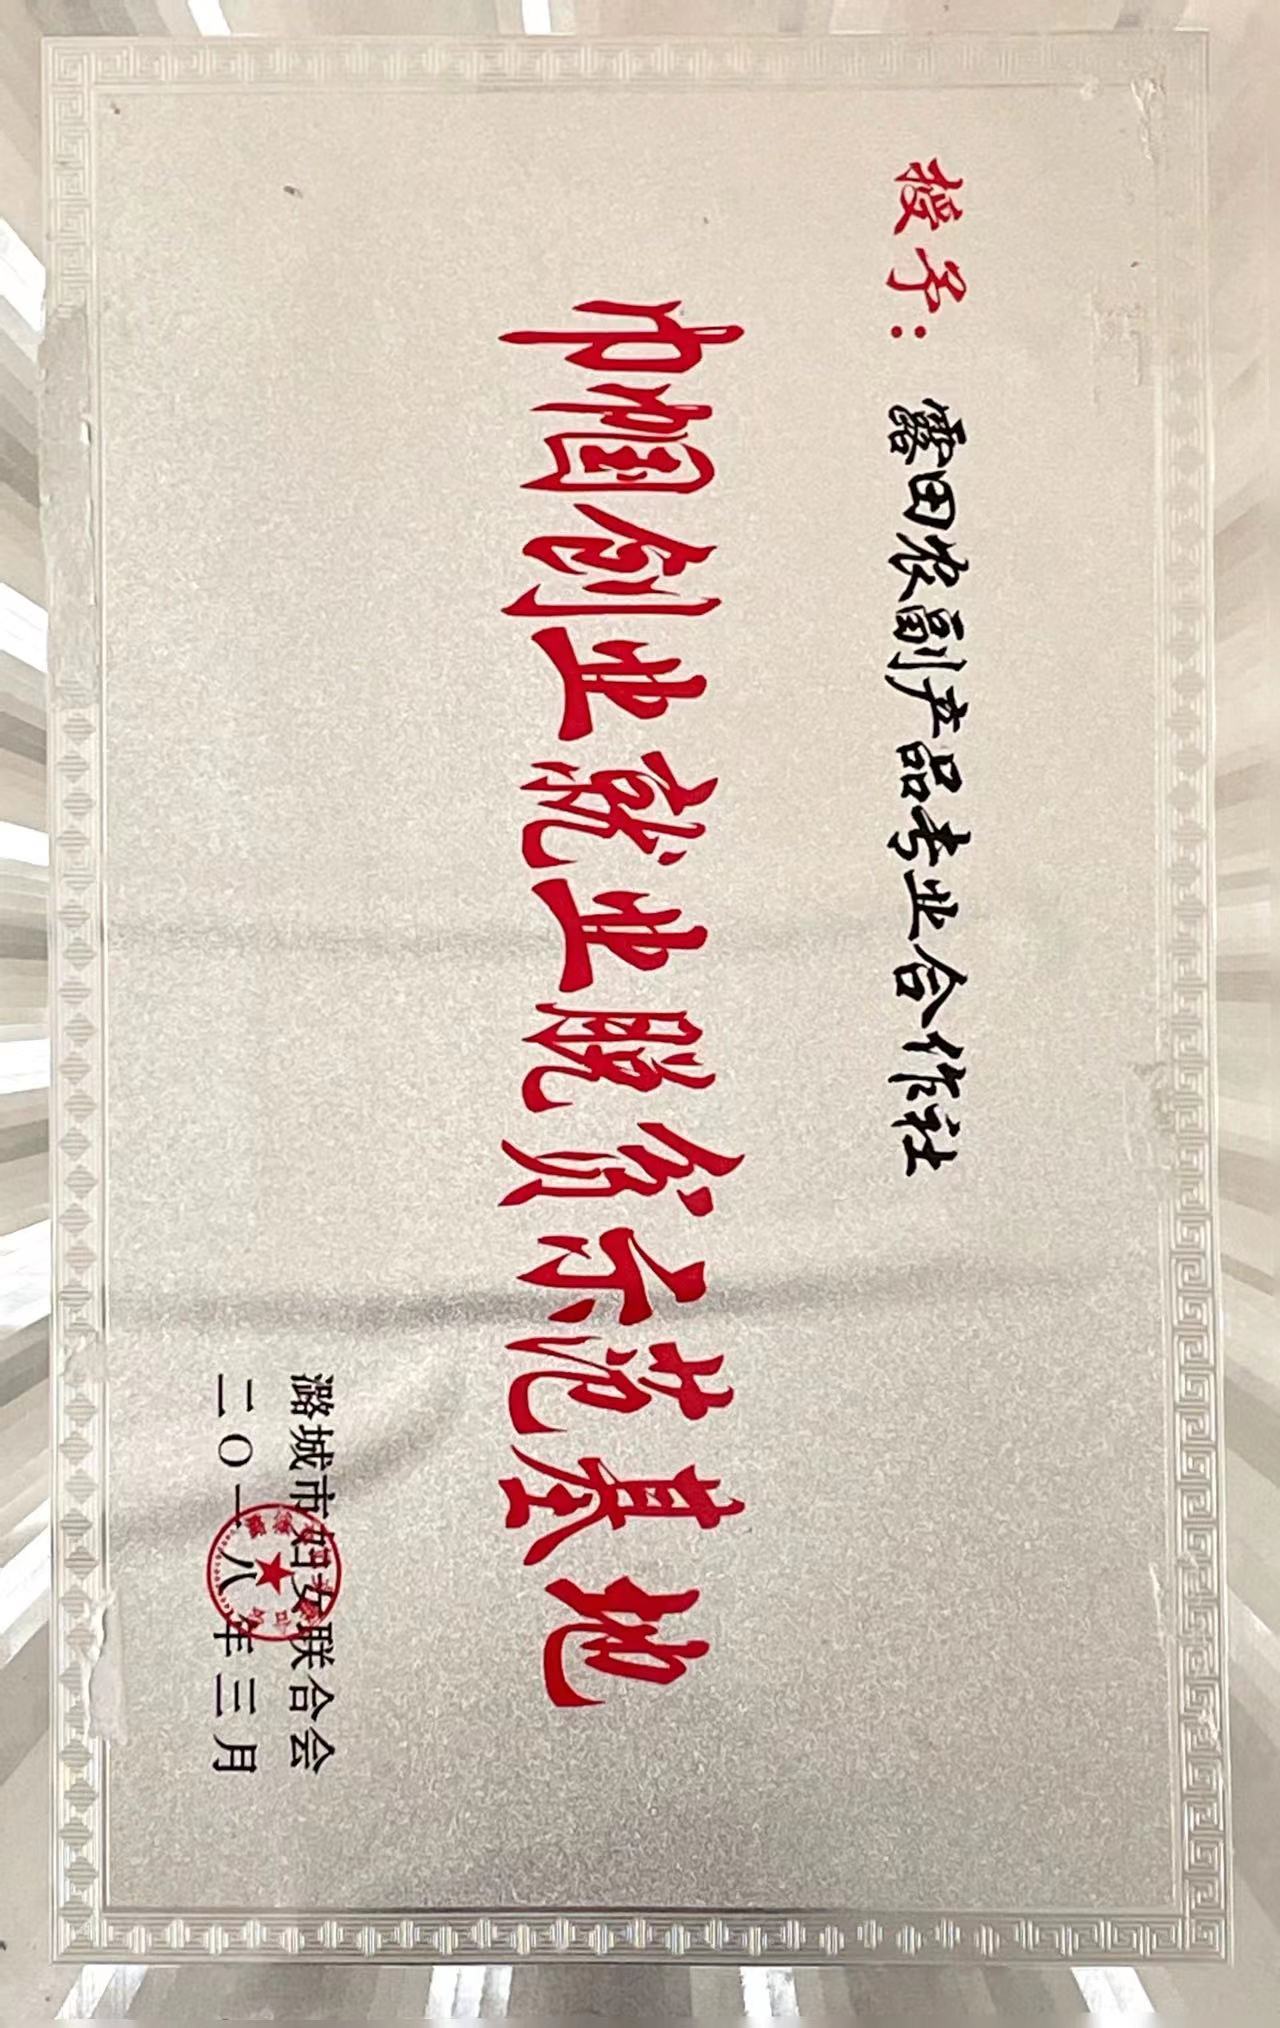 授予：露田农副产品专业合作社
巾帼创业就业脱贫示范基地
潞城市妇女联合会
二〇一八年三月